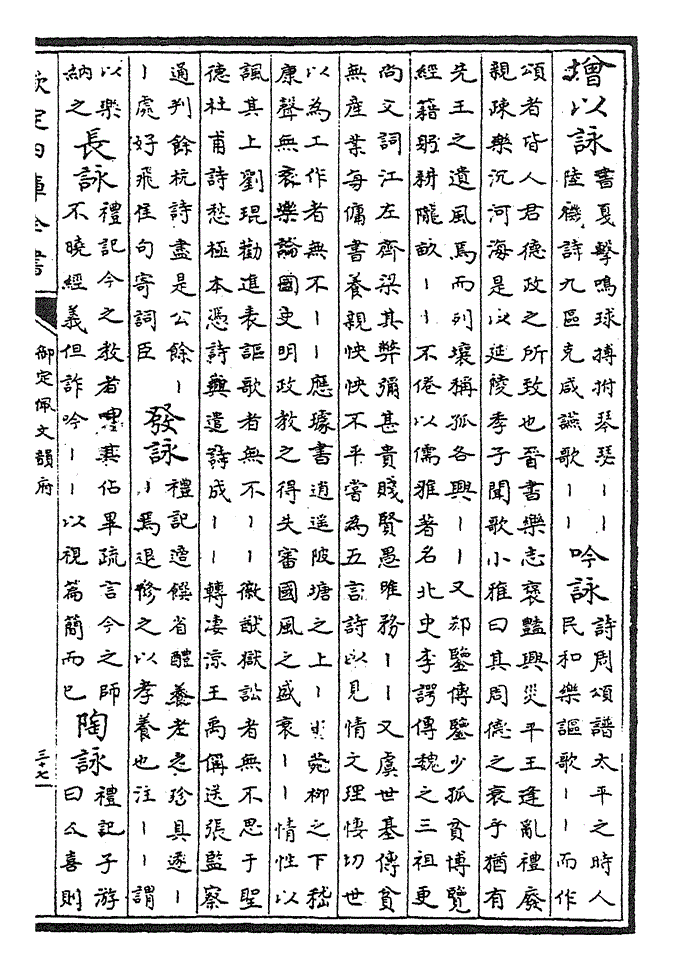 增以詠
書戛擊鳴球搏拊琴瑟丨丨
陸機詩九區克咸讌歌丨丨
吟詠
詩周頌譜太平之時人
民和樂謳歌丨丨而作
頌者皆人君德政之所致也晉書樂志褒豔興災平王逢亂禮廢
親疎樂沉河海是以延陵季子聞歌小雅曰其周德之衰乎猶有
先王之遺風焉而列壤稱孤各興丨丨又郄鑒傳鑒少孤貧博覽
經籍躬耕隴畝丨丨不倦以儒雅著名北史李諤傳魏之三祖更
尚文詞江左齊梁其弊彌甚貴賤賢愚唯務丨丨又虞世基傳貧
無產業每傭書養親怏怏不平嘗為五言詩以見情文理悽切世
以為工作者無不丨丨應璩書逍遥陂塘之上丨丨菀柳之下嵇
康聲無哀樂論國史明政教之得失審國風之盛衰丨丨情性以
諷其上劉琨勸進表謳歌者無不丨丨徽猷獄訟者無不思于聖
德杜甫詩愁極本憑詩興遣詩成丨丨轉凄涼王禹偁送張監察
通判餘杭詩盡是公餘丨
丨處好飛佳句寄詞臣
發詠
禮記適饌省醴養老之珍具遂丨
丨焉退修之以孝養也注丨丨謂
以樂
納之
長詠
禮記今之教者呻其佔畢疏言今之師
不曉經義但詐吟丨丨以視篇簡而已
陶詠
禮記子游
曰人喜則
欽定四庫全書
御定佩文韻府
三十七